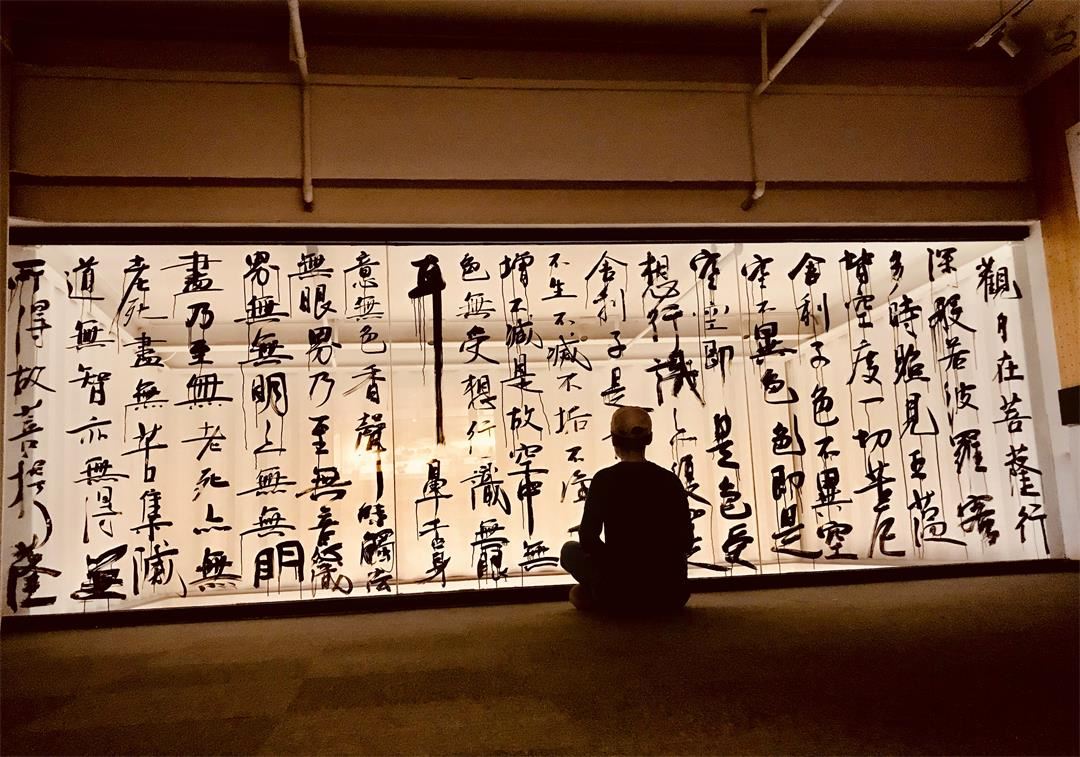 觀自在菩薩行
深般若波羅蜜
多時照見五蘊
皆空度一切苦厄
舍利子色不異空
空不異色色即是
空空即是色受
想行識亦復
舍利子是
不生不滅不垢不淨
增不減是故空中無
色無受想行識無眼
耳鼻舌身
意無色香聲味觸法
無眼界乃至無意識
界無無明亦無無明
盡乃至無老死亦無
老死盡無苦集滅
道無智亦無得無
所得故菩提薩